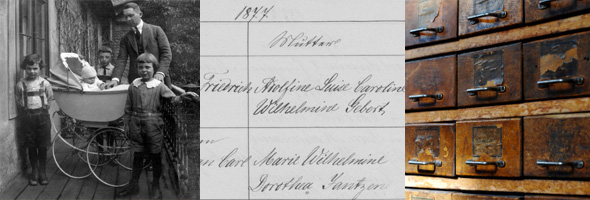 1877.
Mutter
Friedrich Adolfine Luise Caroline
Wilhelmine Gebert,
Carl Marie Wilhelmine
Dorothea Jantzen